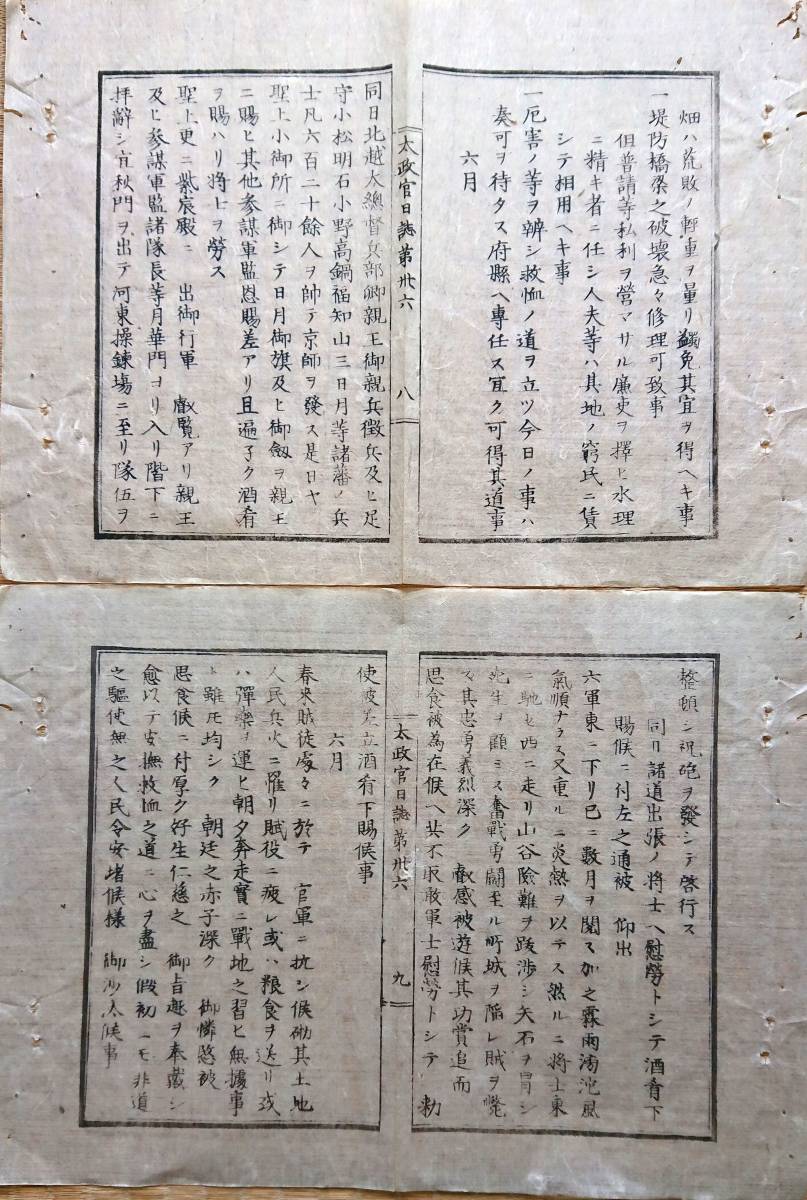 畑ハ荒敗ノ輕重ヲ量リ蠲免其宜ヲ得ヘキ事
一堤防橋梁之破壊急々修理可致事
但普請等私利ヲ營マサル廉吏ヲ擇ヒ水理
ニ精キ者ニ任シ人夫等ハ其地ノ窮民ニ賃
シテ相用ヘキ事
一厄害ノ等ヲ辨シ救恤ノ道ヲ立ツ今日ノ事ハ
奏可ヲ待タス府縣ヘ專任ス宜ク可得其道事
六月
太政官日誌第卅六
八
同日北越大總督兵部卿親王御親兵徴兵及ヒ足
守小松明石小野高鍋福知山三日月等諸藩ノ兵
士凡六百二十餘人ヲ帥テ京師ヲ發ス是日ヤ
聖上小御所ニ御シテ日月御旗及ヒ御劔ヲ親王
ニ賜ヒ其他參謀軍監恩賜差アリ且遍子ク酒肴
ヲ賜ハリ將士ヲ勞ス
聖上更ニ紫宸殿ニ 出御行軍 叡覧アリ親王
及ヒ參謀軍監諸隊長等月華門ヨリ入リ階下ニ
拜辭シ宜秋門ヲ出テ河東操錬塲ニ至リ隊伍ヲ
整頓シ祝砲ヲ發シテ啓行ス
同日諸道出張ノ將士ヘ慰勞トシテ酒肴下
賜候ニ付左之通被 仰出
六軍東ニ下リ已ニ數月ヲ閲ス加之霖雨滂沱風
氣順ナラス又重ルニ炎熱ヲ以テス然ルニ將士東
ニ馳セ西ニ走リ山谷險難ヲ跋渉シ矢石ヲ冒シ
死生ヲ顧ミス奮戰勇鬪至ル所城ヲ陥レ賊ヲ斃
ス其忠勇義烈深ク 叡感被遊候其功賞追而
思食被為在候ヘ共不取敢軍士慰勞トシテ 勅
太政官日誌第卅六
九
使被差立酒肴下賜候事
六月
春来賊徒處々ニ於テ 官軍ニ抗シ候砌其土地
人民兵火ニ罹リ賦役ニ疲レ或ハ粮食ヲ送リ或
ハ彈藥ヲ運ヒ朝夕奔走實ニ戰地之習ヒ無據事
ト雖圧均シク 朝廷之赤子深ク 御憐愍被
思食候ニ付厚ク好生仁慈之 御旨趣ヲ奉戴シ
愈以テ安撫救恤之道ニ心ヲ盡シ假初ニモ非道
之驅使無之人民令安堵候様 御沙太候事